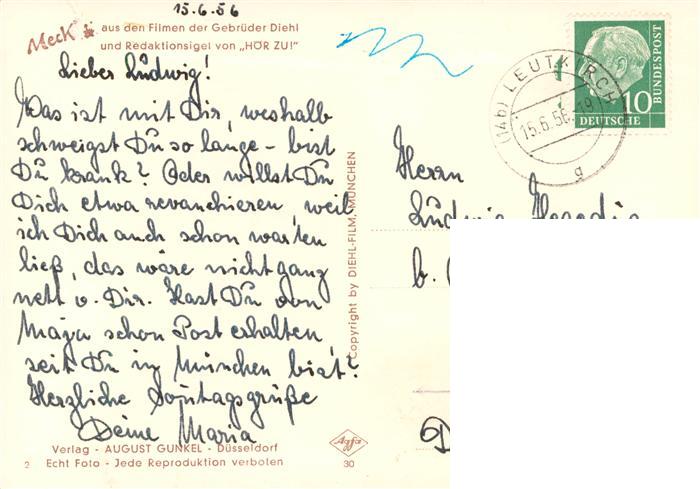 15.6.56
Mecki aus den Filmen der Gebrüder Diehl
und Redaktionsigel von „HÖR ZU!"
Lieber Ludwig!
Was ist mit Dir, weshalb
schweigst Du so lange - bist
Du krank? Oder willst Du
Dich etwa revanchieren, weil
ich Dich auch schon warten
ließ, das wäre nicht ganz
nett v. Dir. Hast Du von
Maja schon Post erhalten
seit Du in München bist?
Herzliche Sonntagsgrüße
Deine Maria
Verlag - AUGUST GUNKEL - Düsseldorf
2 Echt Foto - Jede Reproduktion verboten 30
Agfa
Copyright by DIEHL-FILM, MÜNCHEN
(14b) LEUTKIRCH
15.6.56.-19
g
10
DEUTSCHE
BUNDESPOST
Herrn
Ludwig
b.